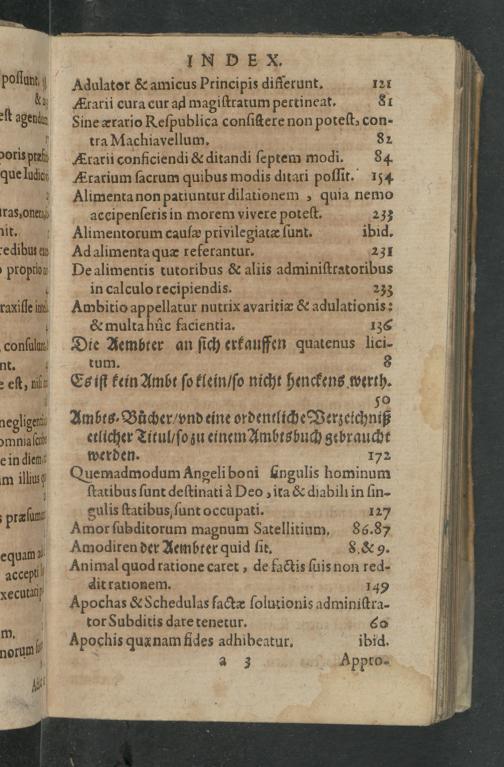 INDEX.
Adulator & amicus Principis differunt. 121
Ærarii cura cur ad magiſtratum pertineat. 81
Sine ærario Reſpublica conſiſtere non poteſt, con-
tra Machiavellum. 82
Ærarii conficiendi & ditandi ſeptem modi. 84
Ærarium ſacrum quibus modis ditari poſſit. 154
Alimenta non patiuntur dilationem, quia nemo
accipenſeris in morem vivere poteſt. 233
Alimentorum cauſæ privilegiatæ ſunt. ibid.
Ad alimenta quæ referantur. 231
De alimentis tutoribus & aliis adminiſtratoribus
in calculo recipiendis. 233
Ambitio appellatur nutrix avaritiæ & adulationis:
& multa hûc facientia. 136
Die Aembter an ſich erkauffen quatenus lici-
tum. 8
Es iſt kein Ambt ſo klein/ſo nicht henckens werth.
50
Ambts-Bücher/vnd eine ordentliche Verzeichniß
etlicher Titul/ſo zu einem Ambtsbuch gebraucht
werden. 172
Quemadmodum Angeli boni ſingulis hominum
ſtatibus ſunt deſtinati à Deo, ita & diabili in ſin-
gulis ſtatibus ſunt occupati. 127
Amor ſubditorum magnum Satellitium. 86.87
Amodiren der Aembter quid ſit. 8. & 9.
Animal quod ratione caret, de factis ſuis non red-
dit rationem. 149
Apochas & Schedulas factæ ſolutionis adminiſtra-
tor Subditis date tenetur. 60
Apochis quænam fides adhibeatur. ibid.
a 3 Appro-